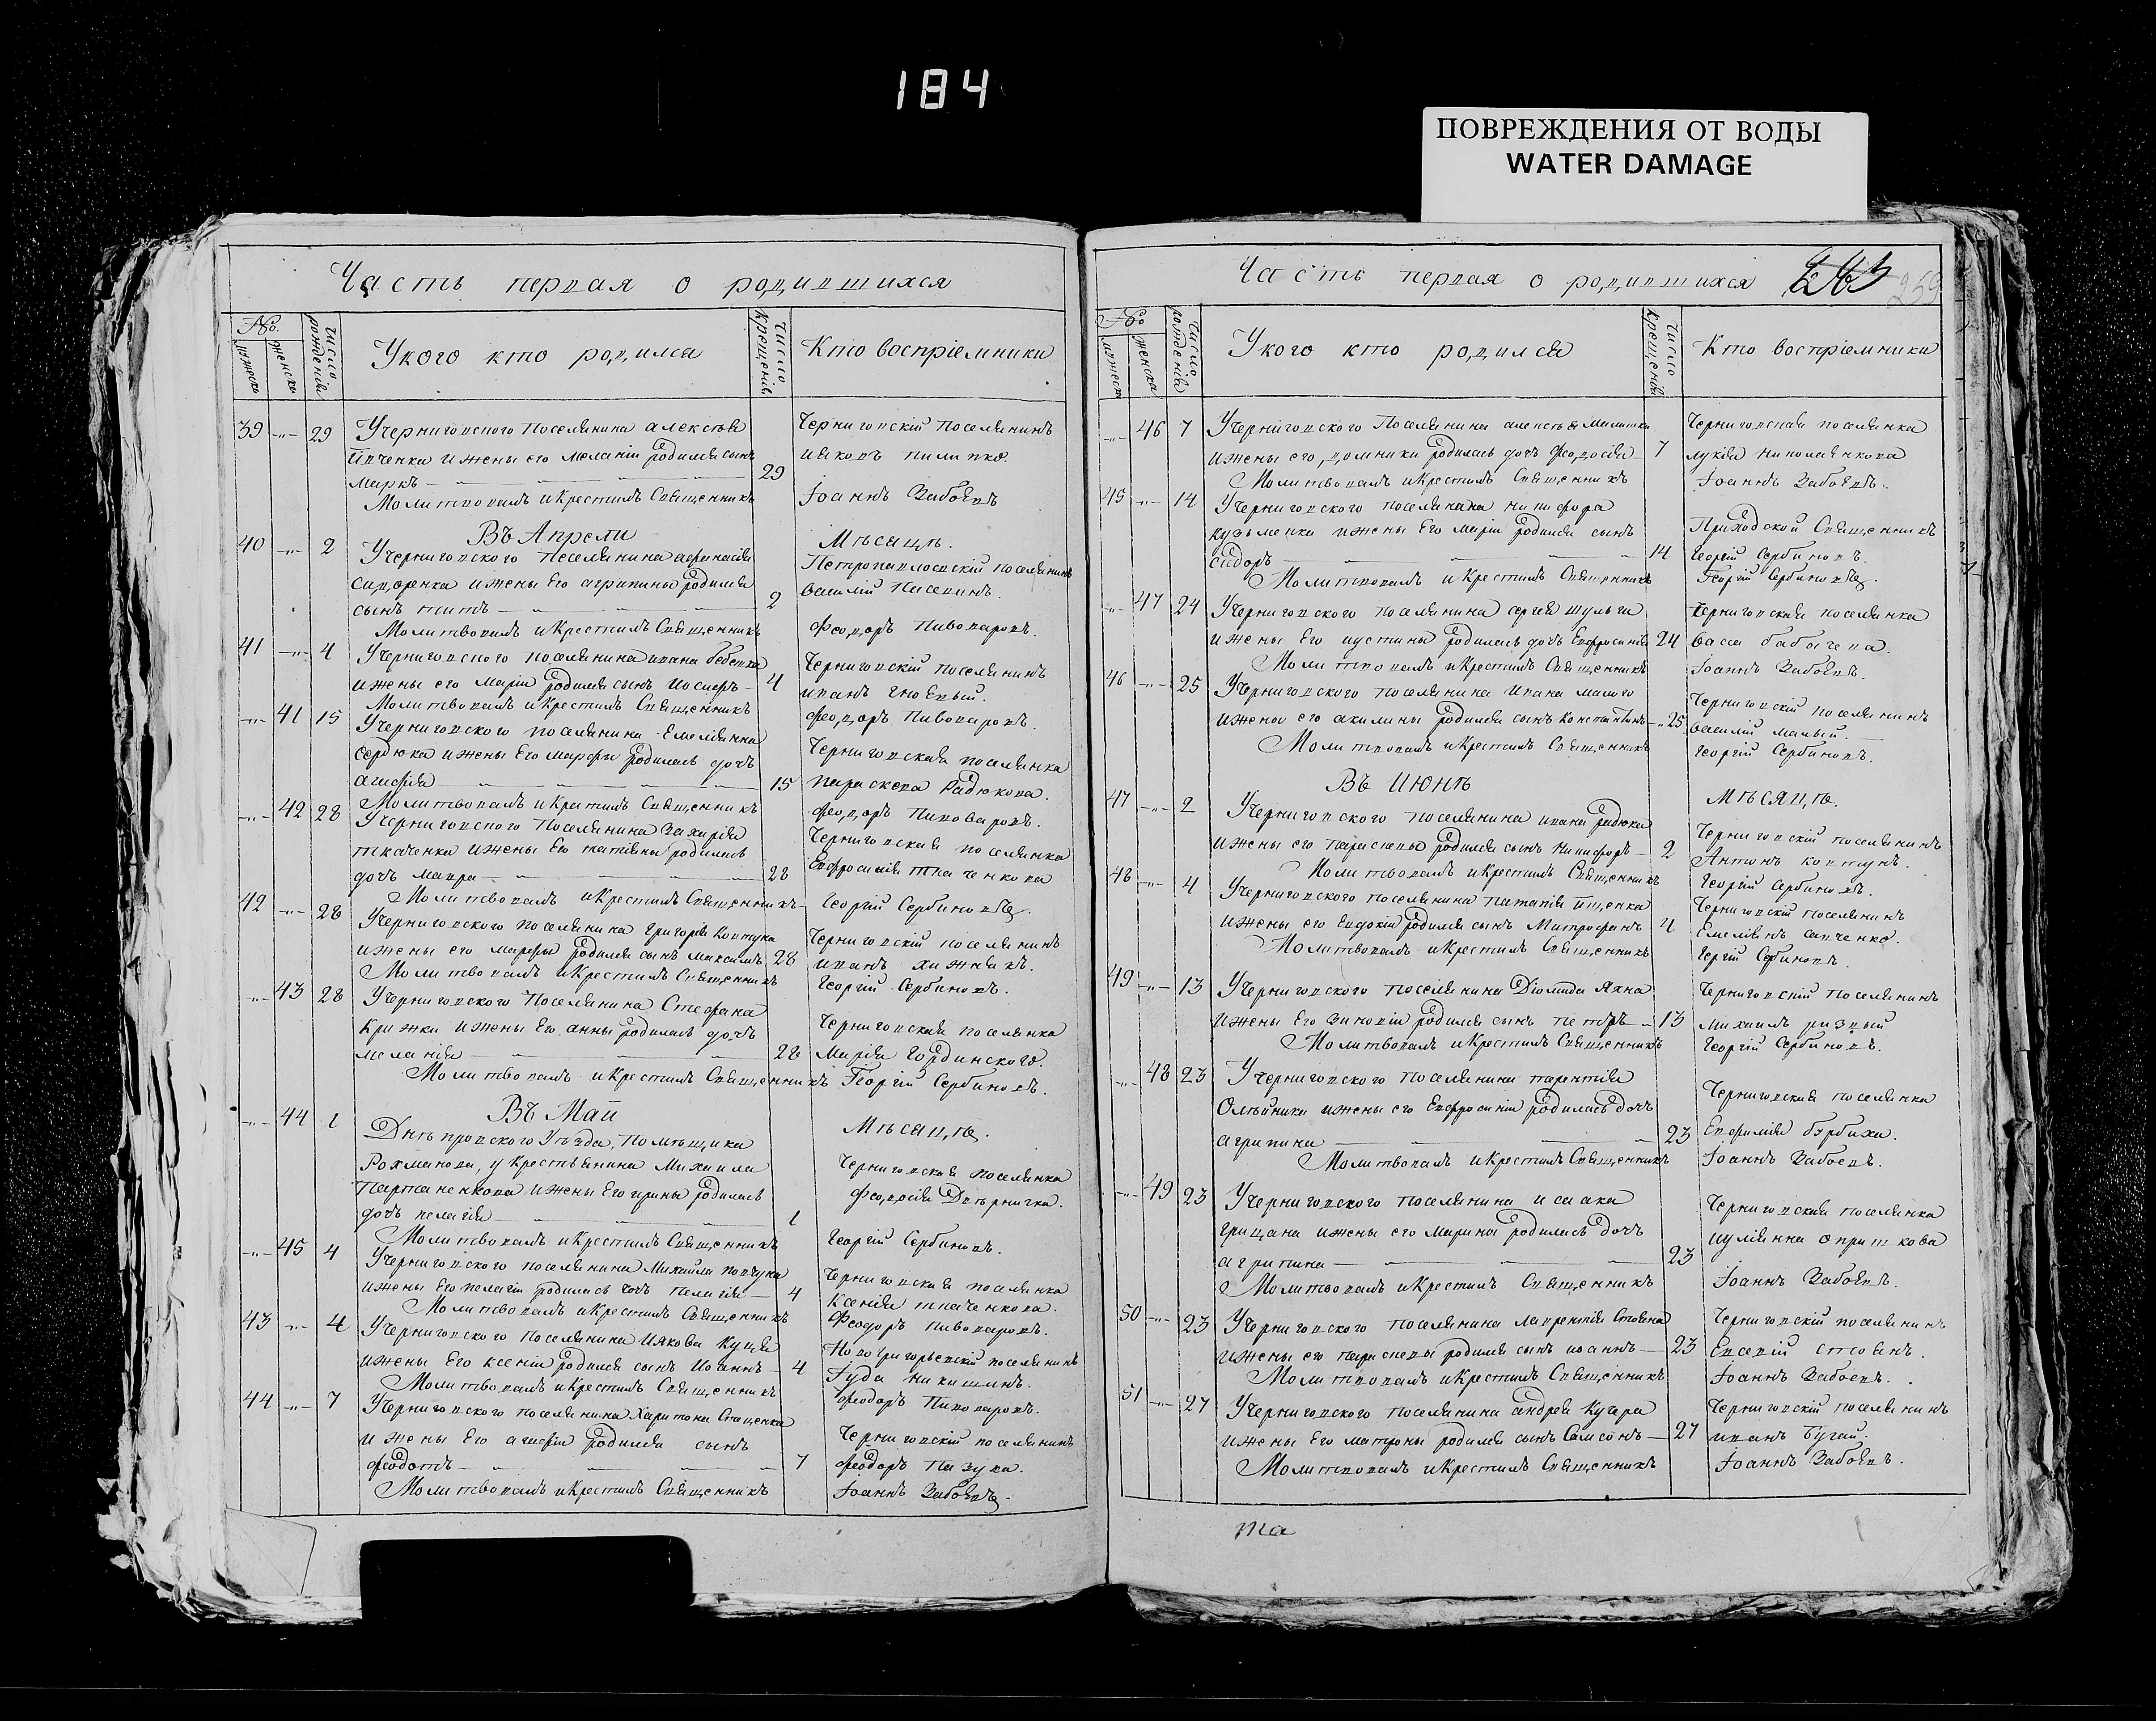 184
ПОВРЕЖДЕНИЯ ОТ ВОДЫ
WATER DAMAGE
Часть первая о родившихся
№.
мужеска
женска
число рожденія
У кого кто родился
число крещенія
Кто воспріемники
39 -„- 29 У Черниговского поселянина алексѣя
Черниговскій поселянинъ
и жены его меланіи родился сынъ
иаковъ пилипко.
маркъ — 29
Молитвовалъ и крестилъ Священникъ
Іоаннъ Забоевъ
Въ Апрели
Мѣсяцѣ.
40 -„- 2 У Черниговского поселянина афанасія
Петропавловскій поселянинъ
сидоренка и жены его агрипины родился
василій
сынъ титъ — 2
Молитвовалъ и крестилъ Священникъ
Феодоръ Пивоваровъ.
41 -„- 4 У Черниговского поселянина ивана
Черниговскій поселянинъ
и жены его маріи родился сынъ иосифъ — 4
иванъ гноевый.
Молитвовалъ и крестилъ Священникъ
феодоръ Пивоваровъ.
-„- 41 15 У Черниговского поселянина Емеліяна
Черниговская поселянка
сердюка и жены его марфы родилась дочь
агафія — 15
параскева Радюкова.
Молитвовалъ и крестилъ Священникъ
феодоръ Пивоваровъ.
-„- 42 28 У Черниговского поселянина Захарія
Черниговская поселянка
ткаченка и жены его татіяны родилась
Евфросинія ткаченкова
дочь мавра — 28
Молитвовалъ и крестилъ Священникъ
Георгій Сербиновъ.
42 -„- 28 У Черниговского поселянина григорія Ковтуна
Черниговскій поселянинъ
и жены его марфы родился сынъ максимъ 28
иванъ хижнякъ.
Молитвовалъ и крестилъ Священникъ
Георгій Сербиновъ.
-„- 43 28 У Черниговского поселянина Стефана
Крижки и жены его анны родилась дочь
Черниговская поселянка
меланія — 28
марія Гординского.
Молитвовалъ и крестилъ Священникъ
Георгій Сербиновъ.
Въ Май
Мѣсяцѣ.
-„- 44 1 Днѣпровского Уѣзда, помѣщика
Рохманова, у крестьянина Михаила
Черниговская поселянка
и жены его ирины родилась
Феодосія
дочь пелагія — 1
Молитвовалъ и крестилъ Священникъ
Георгій Сербиновъ.
-„- 45 4 У Черниговского поселянина Михаила ковтуна
Черниговская поселянка
и жены его пелагіи родилась дочь пелагія — 4
Ксенія ткаченкова.
Молитвовалъ и крестилъ Священникъ
Феодоръ пивоваровъ.
43 -„- 4 У Черниговского поселянина иякова Куция
Новогригорьевскій поселянинъ
и жены его ксеніи родился сынъ иоаннъ — 4
Іуда никишинъ.
Молитвовалъ и крестилъ Священникъ
феодоръ Пивоваровъ.
44 -„- 7 У Черниговского поселянина Харитона Стаценка
Черниговскій поселянинъ
и жены его агафіи родился сынъ
феодотъ — 7
феодоръ Пазука.
Молитвовалъ и крестилъ Священникъ
Іоаннъ Забоевъ.
Часть первая о родившихся
243
259
№
мужеска
женска
число рожденія
У кого кто родился
число крещенія
Кто воспріемники
-„- 46 7 У Черниговского поселянина алексѣя
Черниговская поселянка
и жены его домники родилась дочь феодосія — 7
лукія николаенкова
Молитвовалъ и крестилъ Священникъ
Іоаннъ Забоевъ.
45 -„- 14 У Черниговского поселянина никифора
кузьменка и жены его маріи родился сынъ
Приходской Священникъ
сидоръ — 14
Георгій Сербиновъ.
Молитвовалъ и крестилъ Священникъ
Георгій Сербиновъ.
-„- 47 24 У Черниговского поселянина сергея шульги
Черниговская поселянка
и жены его иустины родилась дочь Евфросинія 24
васса бабичева.
Молитвовалъ и крестилъ Священникъ
Іоаннъ Забоевъ.
46 -„- 25 У Черниговского поселянина ивана малого
Черниговскій поселянинъ
и жены его акилины родился сынъ константинъ — 25
василій малый.
Молитвовалъ и крестилъ Священникъ
Георгій Сербиновъ.
Въ Июнѣ
Мѣсяцѣ.
47 -„- 2 У Черниговского поселянина ивана радюка
Черниговскій поселянинъ
и жены его параскевы родился сынъ никифоръ — 2
Антонъ ковтунъ.
Молитвовалъ и крестилъ Священникъ
Георгій Сербиновъ.
48 -„- 4 У Черниговского поселянина патапія ищенка
Черниговскій поселянинъ
и жены его Евдокіи родился сынъ Митрофанъ 4
Емеліянъ савченко.
Молитвовалъ и крестилъ Священникъ
Георгій Сербиновъ.
49 -„- 13 У Черниговского поселянина Діомида Яхна
Черниговскій поселянинъ
и жены его зиновіи родился сынъ петръ — 13
Михаилъ
Молитвовалъ и крестилъ Священникъ
Георгій Сербиновъ.
-„- 48 23 У Черниговского поселянина терентія
Черниговская поселянка
Олейника и жены его Евфросиніи родилась дочь
агрипина — 23
Евфимія бурбиха.
Молитвовалъ и крестилъ Священникъ
Іоаннъ Забоевъ.
-„- 49 23 У Черниговского поселянина исаака
Черниговская поселянка
грицана и жены его марины родилась дочь
иуліянна опришкова
агрипина — 23
Молитвовалъ и крестилъ Священникъ
Іоаннъ Забоевъ.
50 -„- 23 У Черниговского поселянина лаврентія Стояна
Черниговскій поселянинъ
и жены его параскевы родился сынъ иоаннъ — 23
Евсевій стоянъ.
Молитвовалъ и крестилъ Священникъ
Іоаннъ Забоевъ.
51 -„- 27 У Черниговского поселянина андрея Кучера
Черниговскій поселянинъ
и жены его матроны родился сынъ Самсонъ — 27
иванъ Бугай.
Молитвовалъ и крестилъ Священникъ
Іоаннъ Забоевъ.
та